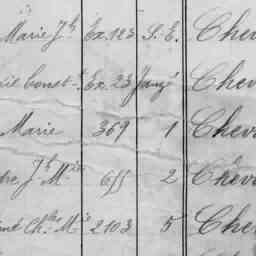 Marie Jh Ex. 123 S. E. Chev
Ex. 23 Janzé Chev
Marie 369 1 Chev
Jh Mie 655 2 Chev
Chles Mie 2103 5 Chev